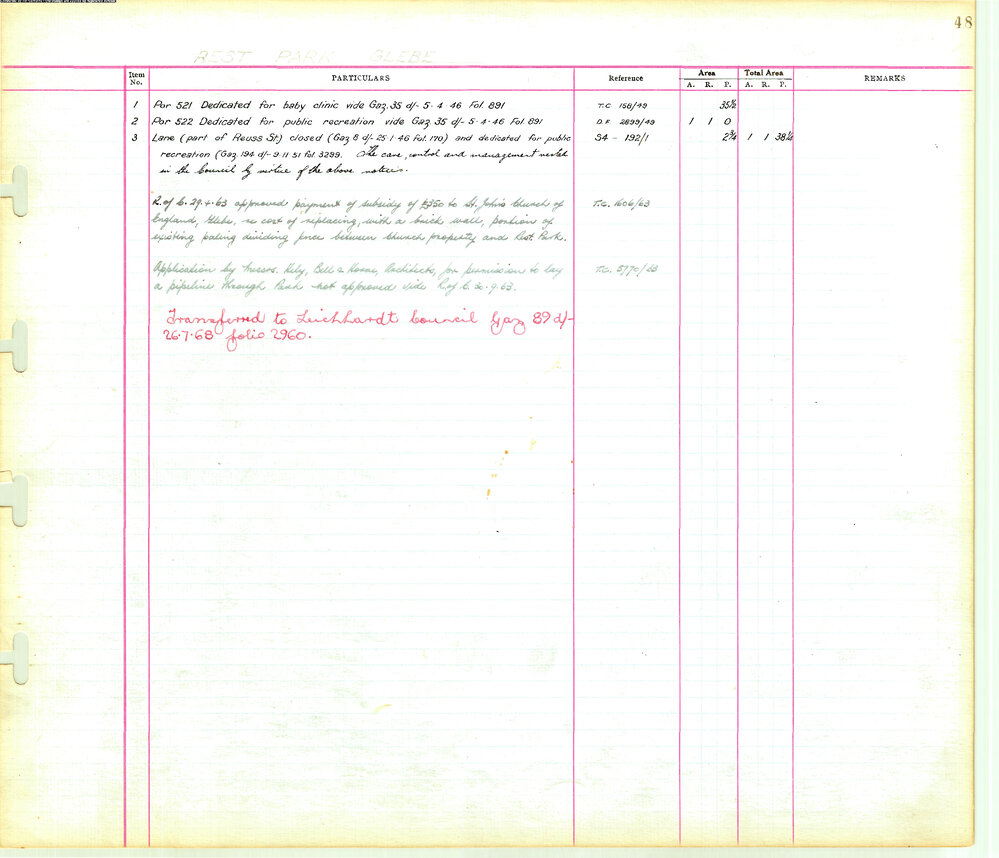 48
REST PARK GLEBE
Item No. PARTICULARS Reference Area Total Area REMARKS
A. R. P. A. R. P.
1 Por 521 Dedicated for baby clinic vide Gaz. 35 d/- 5·4·46 Fol. 891 T.C. 158/49 35½
2 Por 522 Dedicated for public recreation vide Gaz 35 d/- 5·4·46 Fol 891 D.F. 2899/49 1 1 0
3 Lane (part of Reuss St) closed (Gaz 8 d/- 25·1·46 Fol. 170) and dedicated for public S4 - 192/1 2¾ 1 1 38¼
recreation (Gaz. 194 d/- 9·11·51 fol. 3299. The care, control and management vested
in the Council by virtue of the above notices.
R. of C. 29.4.63 approved payment of subsidy of £350 to St. John's Church of T.C. 1606/63
England, Glebe, re cost of replacing, with a brick wall, portion of
existing paling dividing fence between Church property and Rest. Park.
Application by Messrs. Kely, Bell & Horne, Architects, for permission to lay T.C. 5770/63
a pipeline through Park not approved vide R. of C. 30.9.63.
Transferred to Leichhardt Council Gaz 89 d/-
26·7·68 folio 2960.